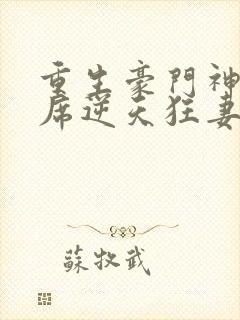 重生豪門神
席逆天狂妻
蘇牧武